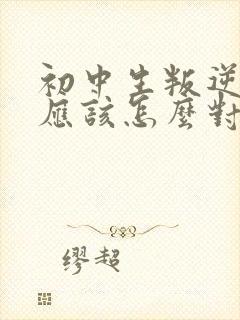 初中生叛逆
應該怎麼對
缪超